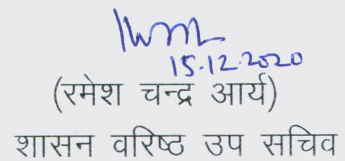 15.12.2020
(रमेश चन्द्र आर्य)
शासन वरिष्ठ उप सचिव